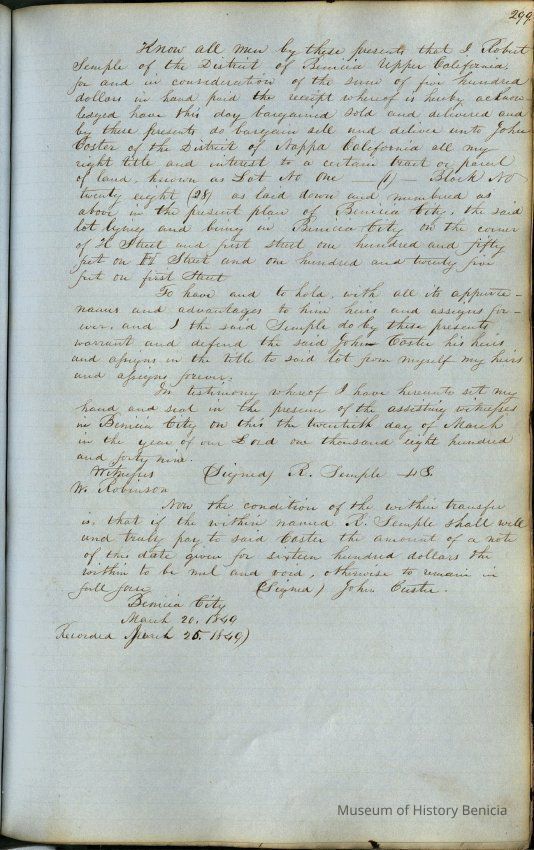 299
Know all men by these presents that I Robert
Semple of the District of Benicia Upper California,
for and in consideration of the sum of five hundred
dollars in hand paid the receipt whereof is hereby acknow
ledged have this day bargained sold and delivered and
by these presents do bargain sell and deliver unto John
Custer of the District of Nappa California all my
right title and interest to a certain tract or parcel
of land, known as Lot No One (1) — Block No
twenty eight (28) as laid down and numbered as
above in the present plan of Benicia City, the said
lot lying and being in Benicia City on the corner
of H Street and first street one hundred and fifty
feet on H Street and one hundred and twenty five
feet on first Street
To have and to hold, with all its appurte-
nances and advantages to him heirs and assigns for-
ever, and I the said Semple do by these presents
warrant and defend the said John Custer his heirs
and assigns in the title to said lot from myself my heirs
and assigns forever.
In testimony whereof I have hereunto set my
hand and seal in the presence of the assisting witnesses
in Benicia City on this the twentieth day of March
in the year of our Lord one thousand eight hundred
and forty nine.
Witnesses (Signed) R. Semple LS.
W. Robinson
Now the condition of the within transfer
is, that if the within named R. Semple shall well
and truly pay to said Custer the amount of a note
of this date given for sixteen hundred dollars the
within to be nul and void, otherwise to remain in
full force (Signed) John Custer.
Benicia City
March 20. 1849
Recorded March 25. 1849)
Museum of History Benicia